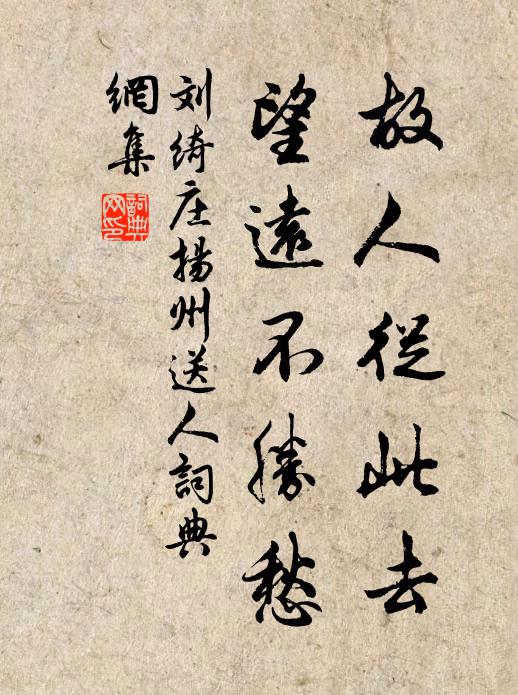 故人從此去
望遠不勝愁
刘绮庄揚州送人詞典
網集
詞典網印